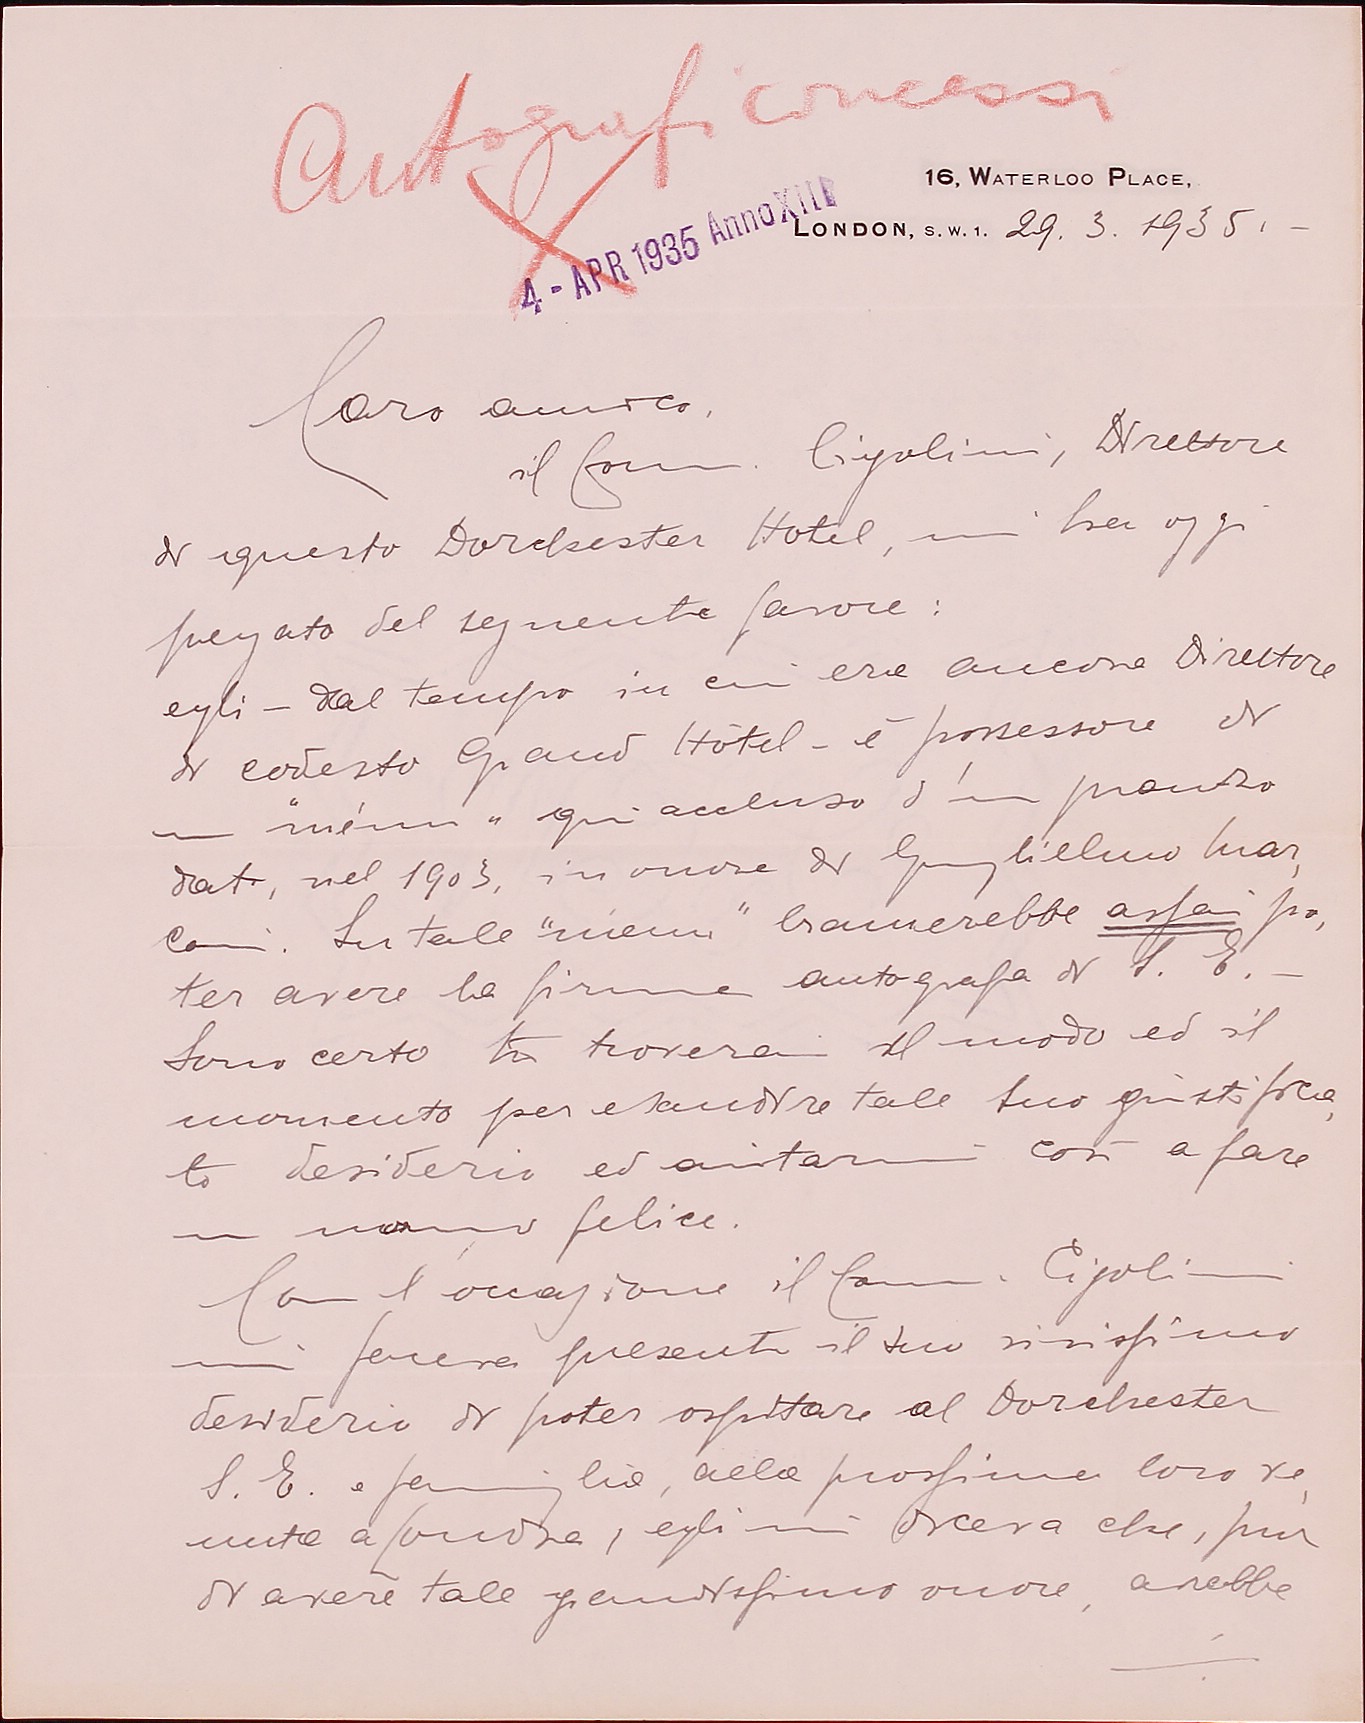 Autografi concessi
16, WATERLOO PLACE,
LONDON, S.W.1. 29. 3. 1935. -
4 - APR 1935 Anno XIII
Caro amico,
il Comm. Cigolini, Direttore
di questo Dorchester Hotel, mi ha oggi
pregato del seguente favore:
egli - dal tempo in cui era ancora Direttore
di codesto Grand Hôtel - è possessore di
un "ménu" qui accluso d'un pranzo
dato, nel 1903, in onore di Guglielmo Mar,
coni. Su tale "ménu" bramerebbe assai po,
ter avere la firma autografa di S. E. -
Sono certo tu troverai il modo ed il
momento per esaudire tale suo giustifica,
to desiderio ed aiutarmi così a fare
un uomo felice.
Con l'occasione il Comm. Cigolini
mi faceva presente il suo vivissimo
desiderio di poter ospitare al Dorchester
S. E. e famiglia, alla prossima loro ve,
nuta a Londra, egli mi diceva che, pur
di avere tale grandissimo onore, avrebbe